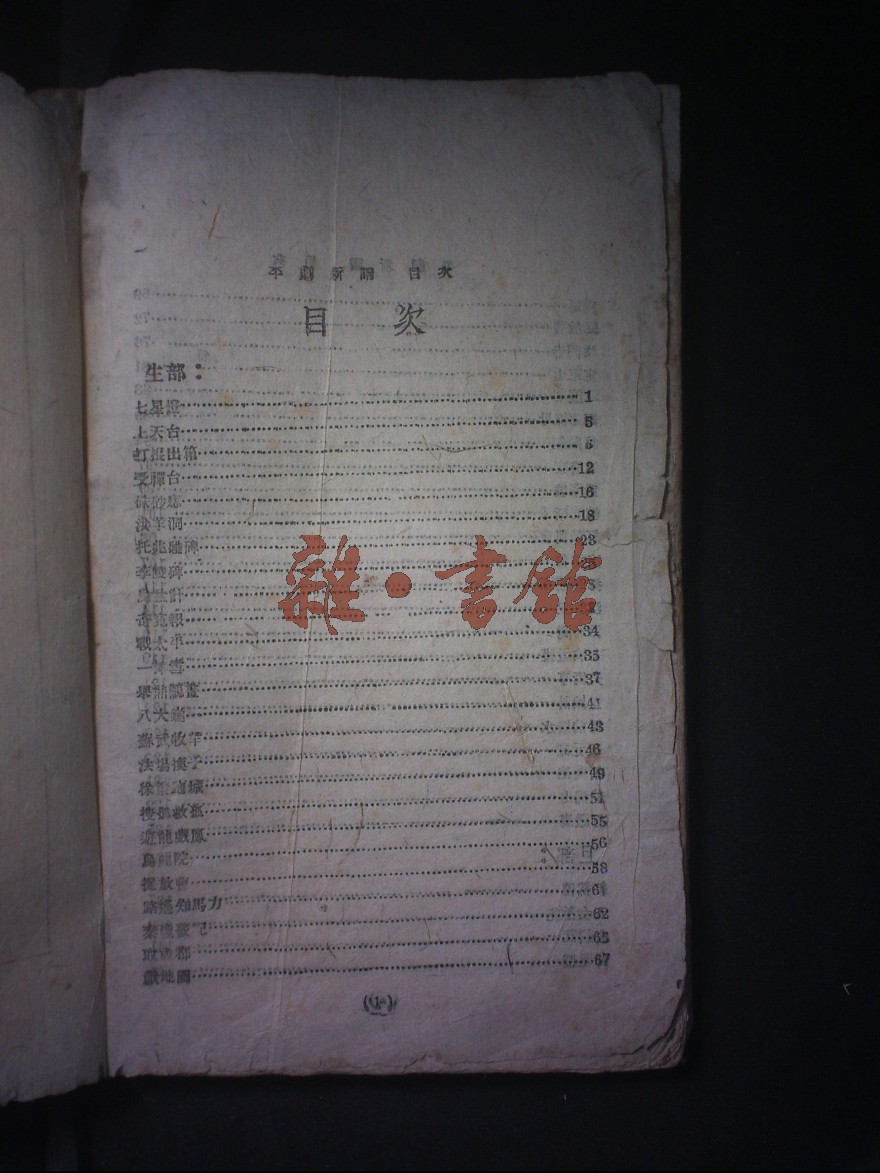 平劇新譜 目次
目 次
生部：
七星燈 1
上天台 5
打棍出箱 6
受禪台 12
硃砂痣 16
洪羊洞 18
托兆碰碑 23
李陵碑 25
奇冤報
戰太平 34
一捧雪 35
舉鼎觀畫 37
八大鎚 41
蘇武牧羊 43
法場換子 46
徐策跑城 49
搜孤救孤 51
遊龍戲鳳 55
烏龍院 56
捉放曹 58
路遙知馬力 61
秦瓊發配 62
取成都 65
獻地圖 67
(1)
雜·書館